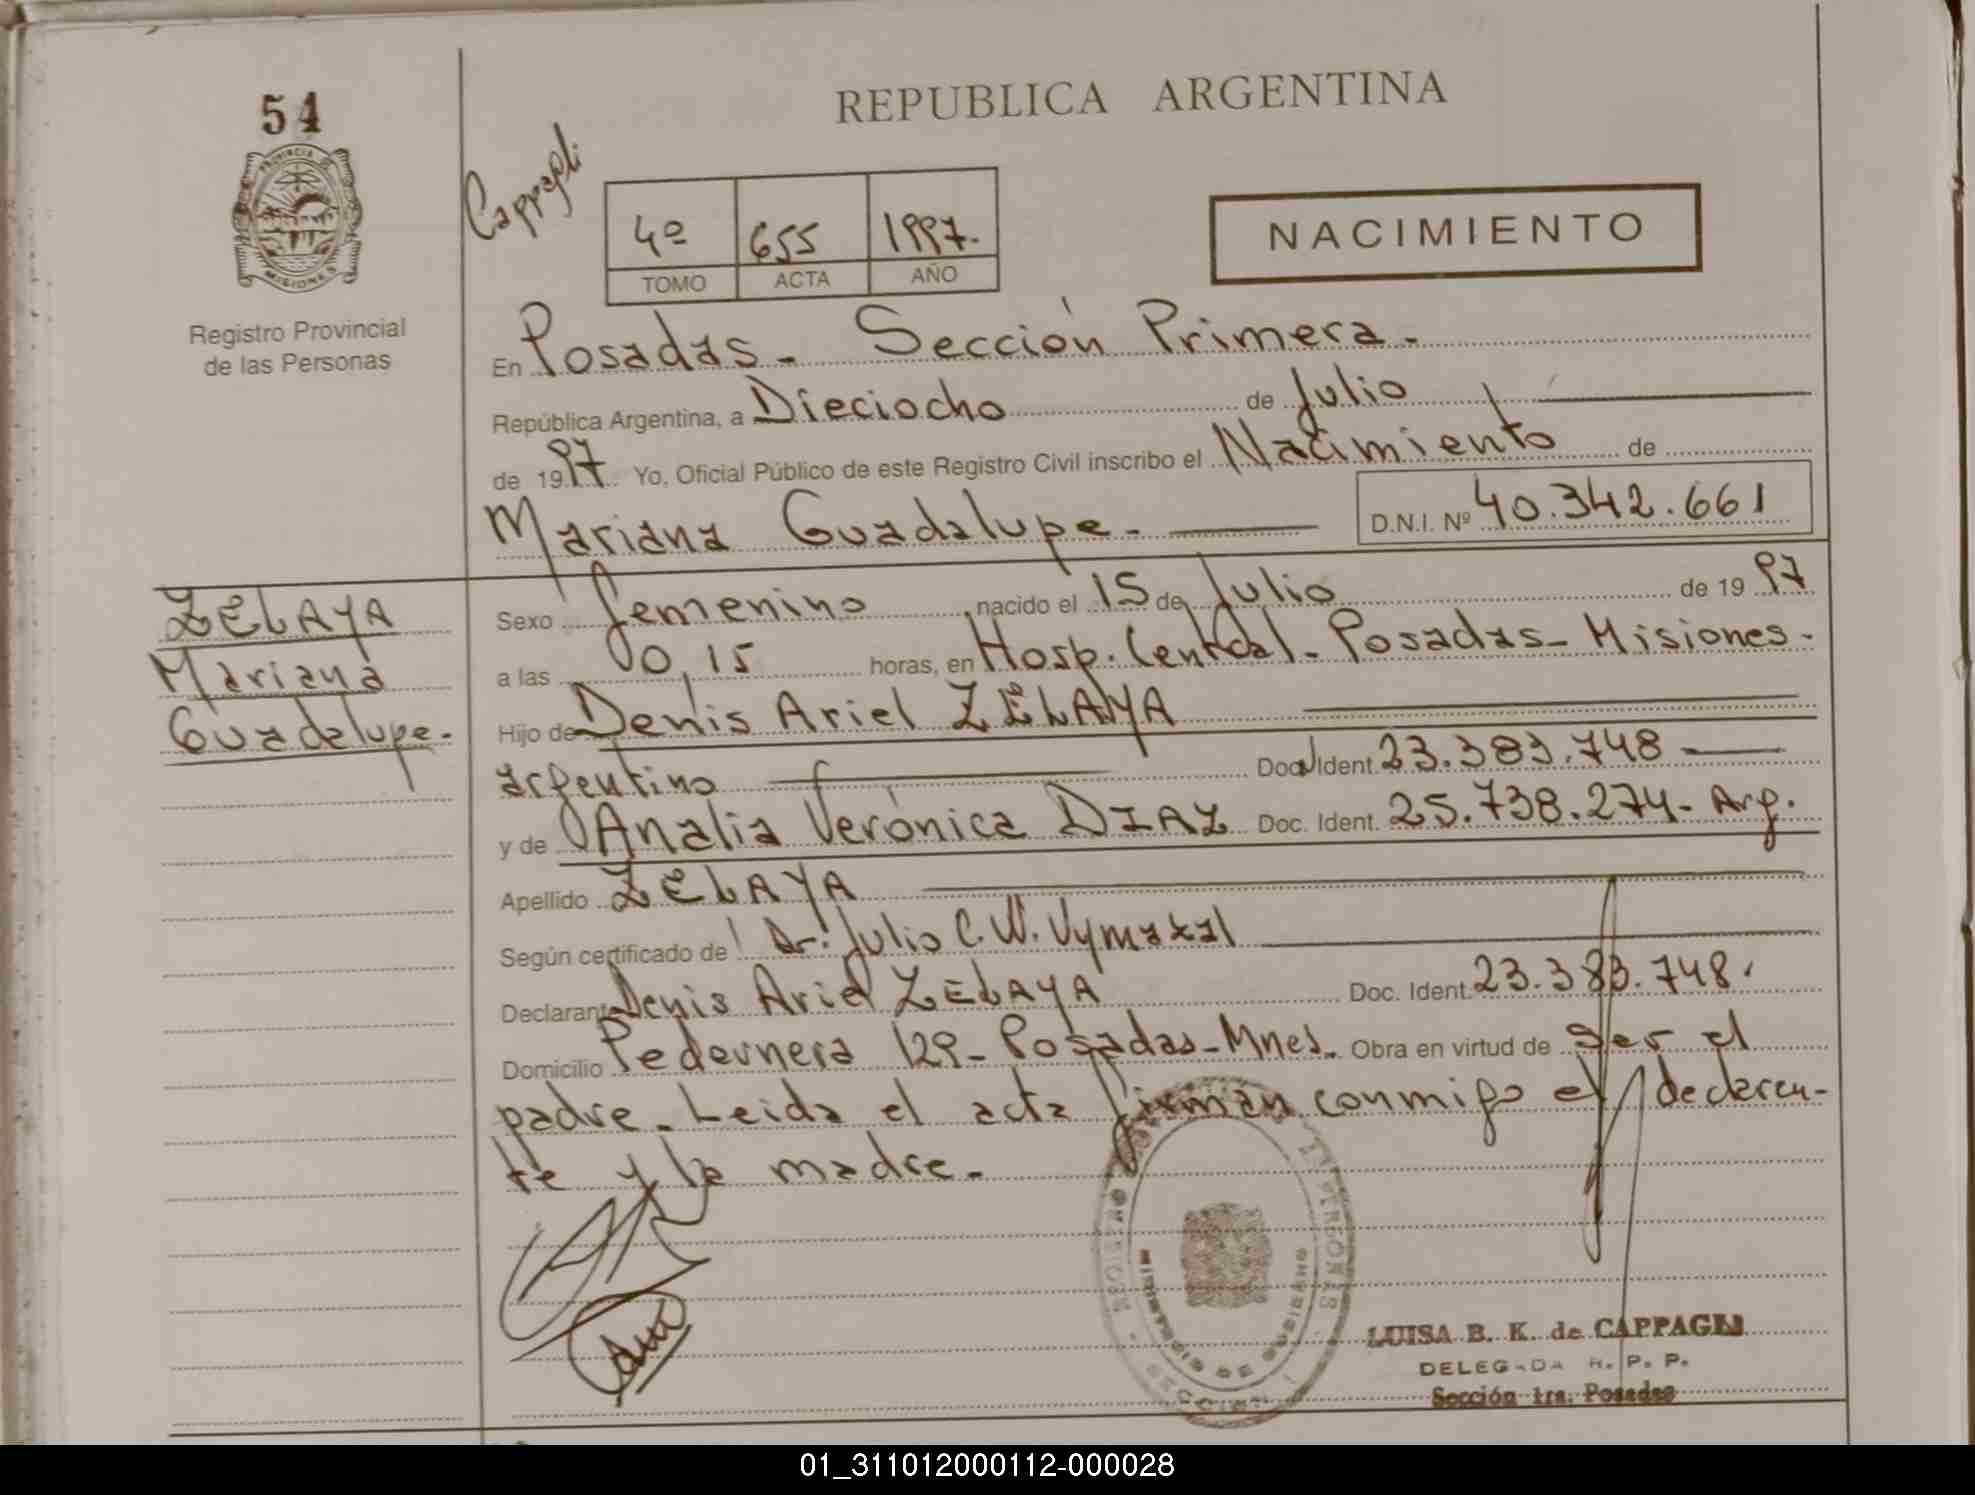 54
PROVINCIA DE
MISIONES
Registro Provincial
de las Personas
REPUBLICA ARGENTINA
4º 655 1997.
TOMO ACTA AÑO
NACIMIENTO
En Posadas - Sección Primera.
República Argentina, a Dieciocho de Julio
de 1997 Yo, Oficial Público de este Registro Civil inscribo el Nacimiento de
Mariana Guadalupe - D.N.I. Nº 40.342.661
ZELAYA
Mariana
Guadalupe.
Sexo femenino, nacido el 15 de Julio de 1997
a las 0,15 horas, en Hosp. Central - Posadas - Misiones -
Hijo de Denis Ariel ZELAYA
argentino Doc. Ident. 23.383.748
y de Analia Verónica DIAZ Doc. Ident. 25.738.274 - Arg.
Apellido ZELAYA
Según certificado de Dr. Julio C. W. Vymazal
Declarante Denis Ariel ZELAYA Doc. Ident. 23.383.748.
Domicilio Pedernera 129 - Posadas - Mnes. Obra en virtud de ser el
padre. Leida el acta firman conmigo el declaran-
te y la madre.
LUISA B. K. de CAPPAGLI
DELEGADA R. P. P.
Sección 1ra. Posadas
01_311012000112-000028